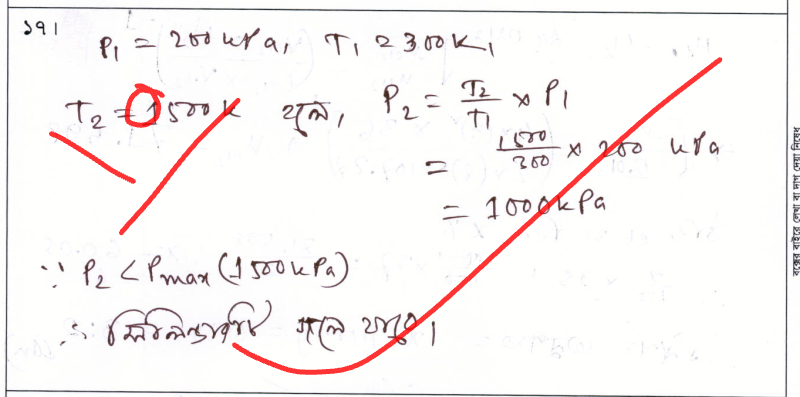 ১৭।
P₁ = 200 kPa, T₁ = 300K,
T₂ = 1500K হলে, P₂ = T₂/T₁ × P₁
= 1500/300 × 200 kPa
= 1000kPa
∵ P₂ < Pmax (1500kPa)
∴ সিলিন্ডারটি
বক্সের বাইরে লেখা বা দাগ দেয়া নিষেধ